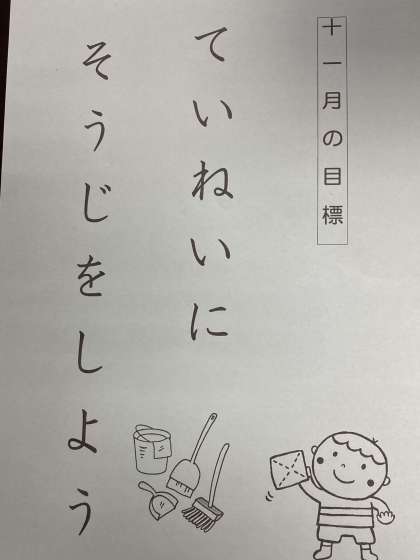 十一月の目標
ていねいに
そうじをしよう